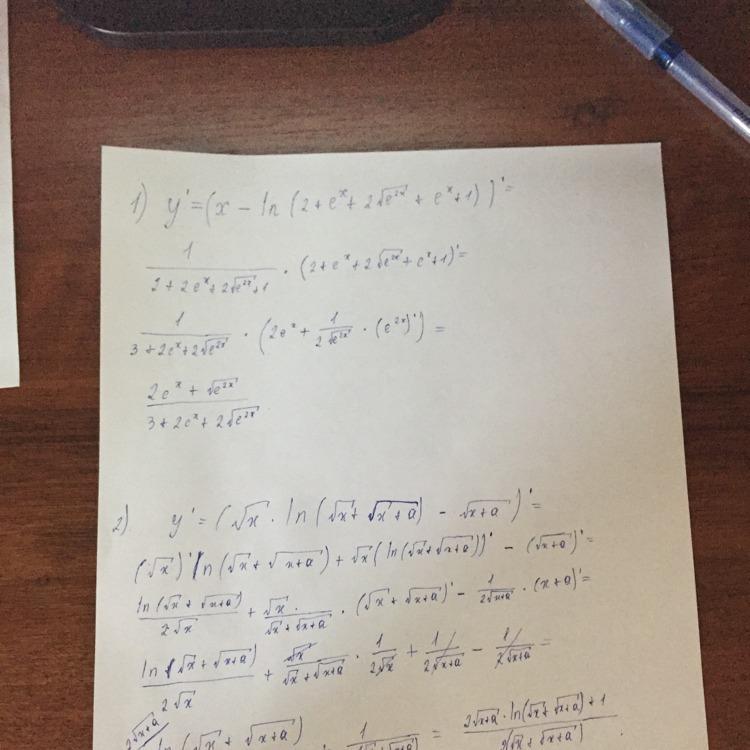 1) y' = (x - ln (2 + e^x + 2√(e^(2x)) + e^x + 1))' =
1/(2 + 2e^x + 2√(e^(2x)) + 1) · (2 + e^x + 2√(e^(2x)) + e^x + 1)' =
1/(3 + 2e^x + 2√(e^(2x))) · (2e^x + 1/(2√(e^(2x))) · (e^(2x))') =
(2e^x + √(e^(2x)))/(3 + 2e^x + 2√(e^(2x)))
2) y' = (√x · ln (√x + √(x+a)) - √(x+a))' =
(√x)' ln (√x + √(x+a)) + √x (ln(√x + √(x+a)))' - (√(x+a))' =
ln (√x + √(x+a))/(2√x) + √x/(√x + √(x+a)) · (√x + √(x+a))' - 1/(2√(x+a)) · (x+a)' =
ln (√x + √(x+a))/(2√x) + √x/(√x + √(x+a)) · 1/(2√x) + 1/(2√(x+a)) - 1/(2√(x+a)) =
2√(x+a) ln (√x + √(x+a)) 1 = (2√(x+a) · ln(√x + √(x+a)) + 1)/(2(√x + √(x+a)))